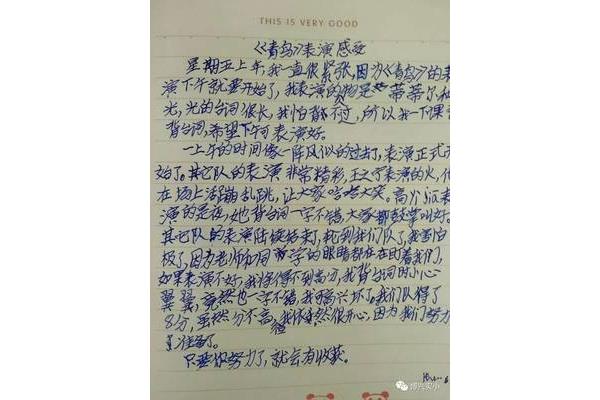 THIS IS VERY GOOD
《青鸟》表演感受
星期五上午,我一直很紧张,因为《青鸟》的表
演下午就要开始了,我表演的是蒂蒂尔和
光,光的台词很长,我怕背不过,所以我一下课
背台词,希望下午可表演好。
一上午的时间像一阵风似的过去了,表演正式开
始了。其它队的表演非常精彩,王子可表演的火,他
在场上活蹦乱跳,让大家哈哈大笑。高
演的是夜,她背台词一字不错,大家都鼓掌叫好。
其它队的表演陆续结束了,轮到我们队了,我害怕
极了,因为老师和同学的眼睛都在盯着我们,
如果表演不好,我将得不到高分,我背台词时小心
翼翼,竟然也一字不错,我可高兴坏了。我们队得了
8分,虽然分不高,我依然很开心,因为我们努力
准备了。
只要你努力了,就会有收获。
博兴实小